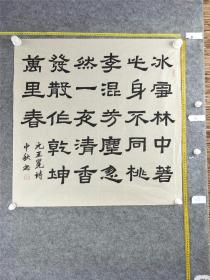 冰雪林中著
此身不同桃
李混芳塵忽
然一夜清香
發散作乾坤
萬里春
元王冕詩
中秋